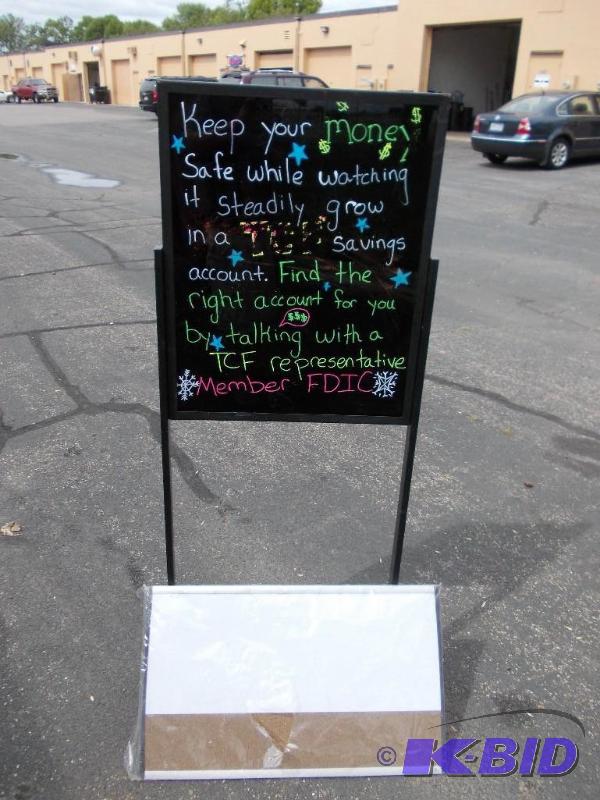 Keep your money
Safe while watching
it steadily grow
in a TCF savings
account. Find the
right account for you
$$$
by talking with a
TCF representative
Member FDIC
© K-BID